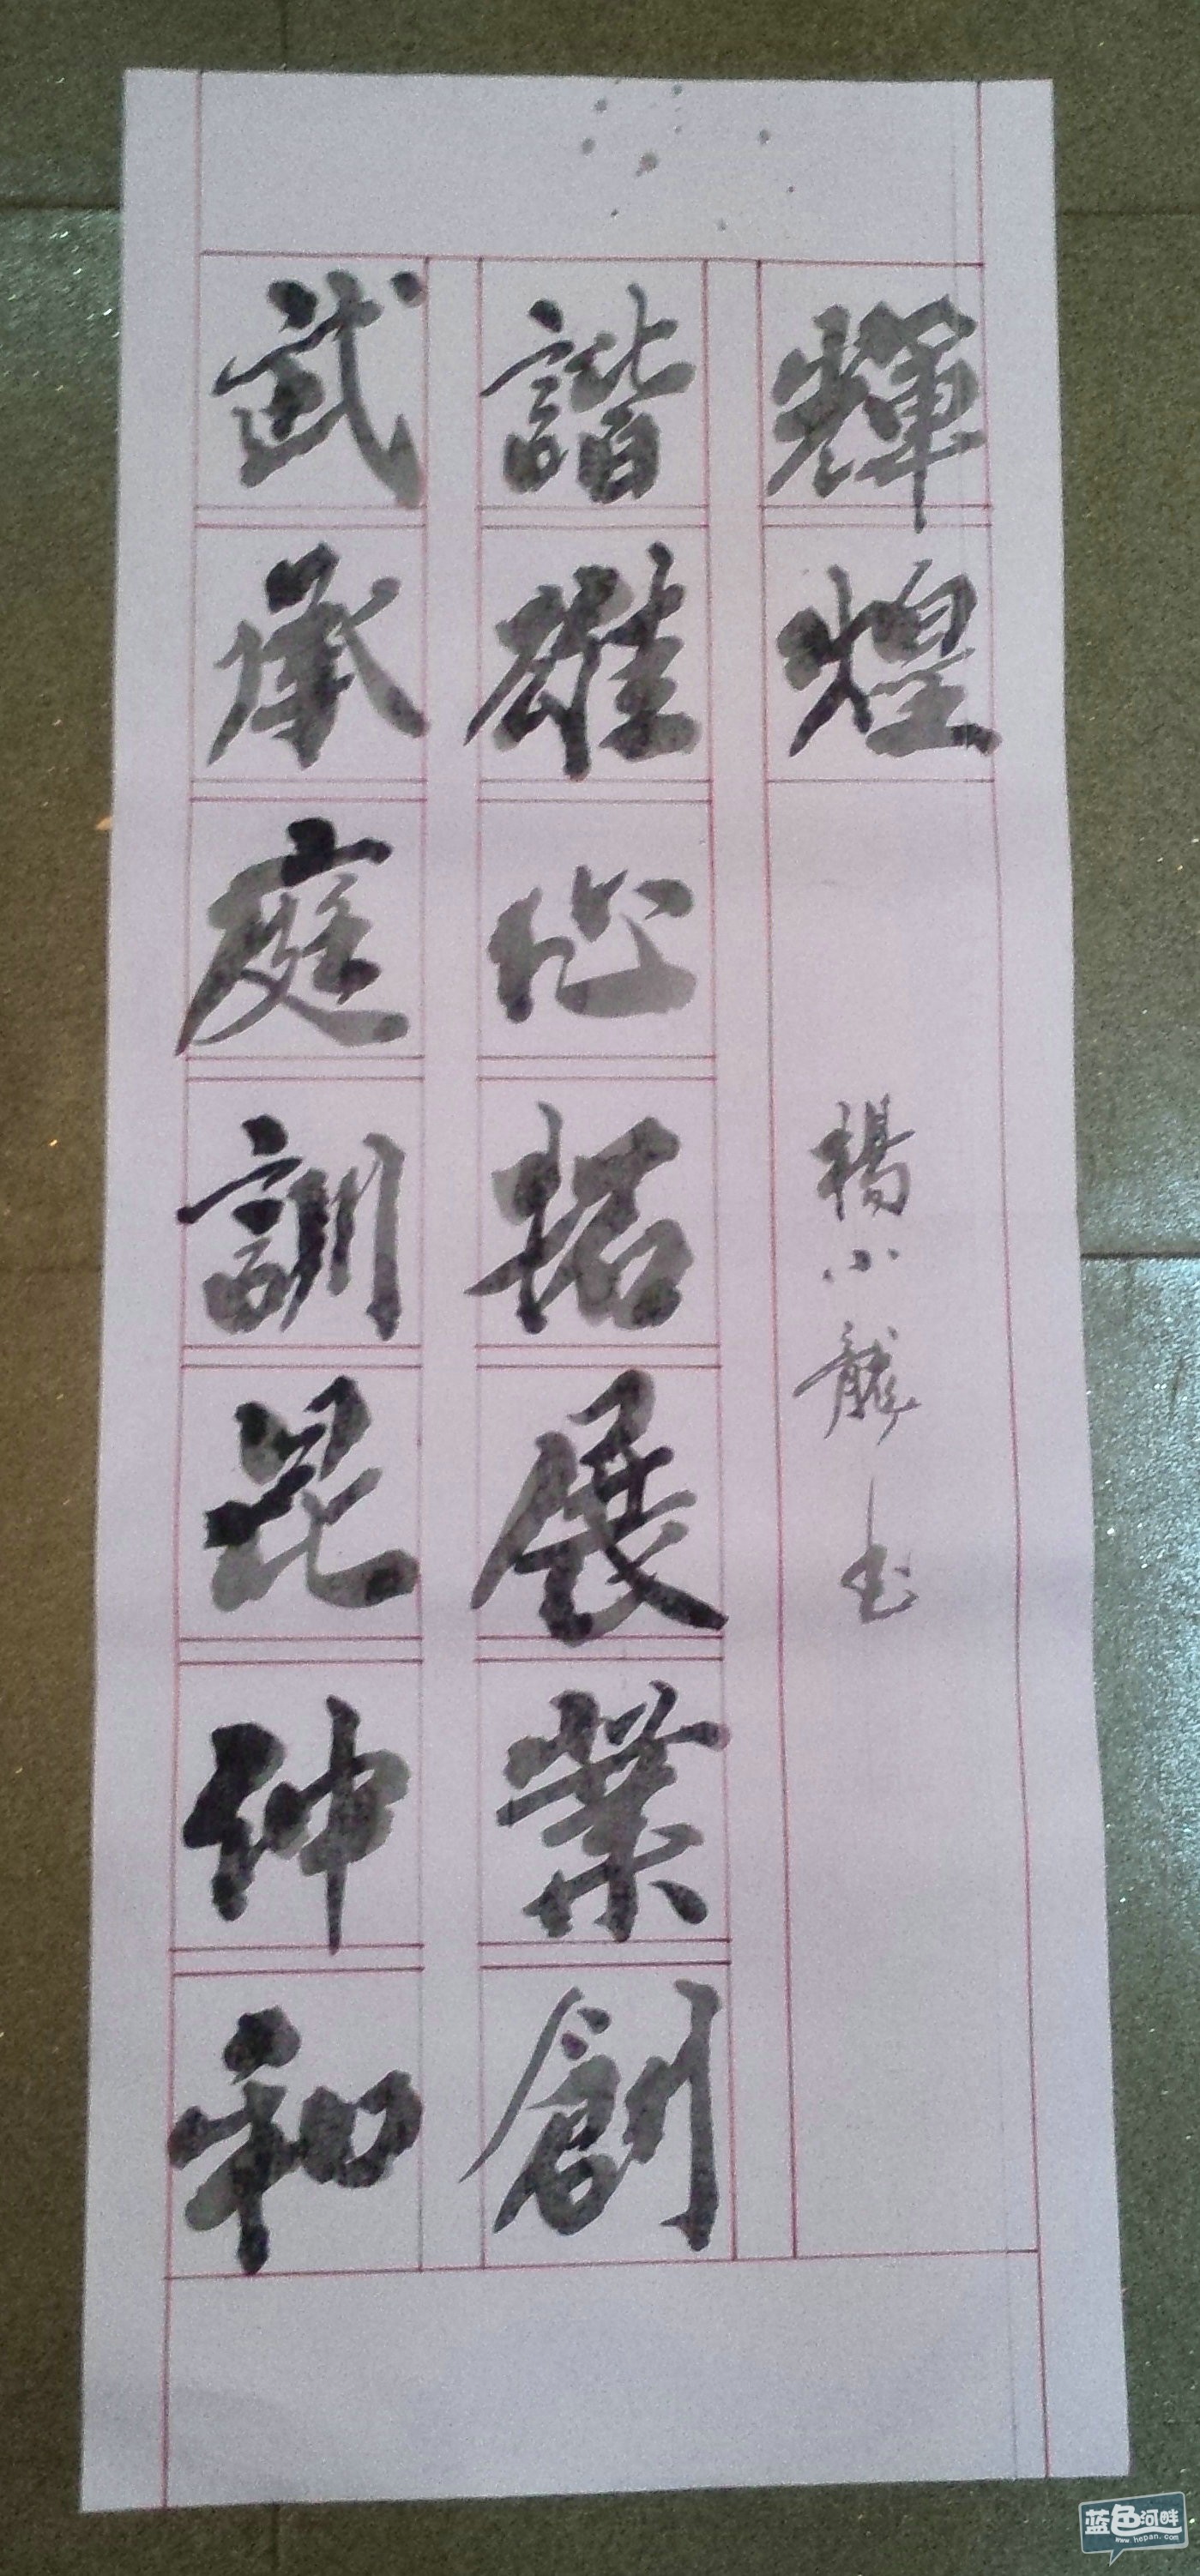 武承庭訓昆仲和
諧雄心拓展業創
輝煌
楊小龍书
蓝色河畔
www.hepan.com